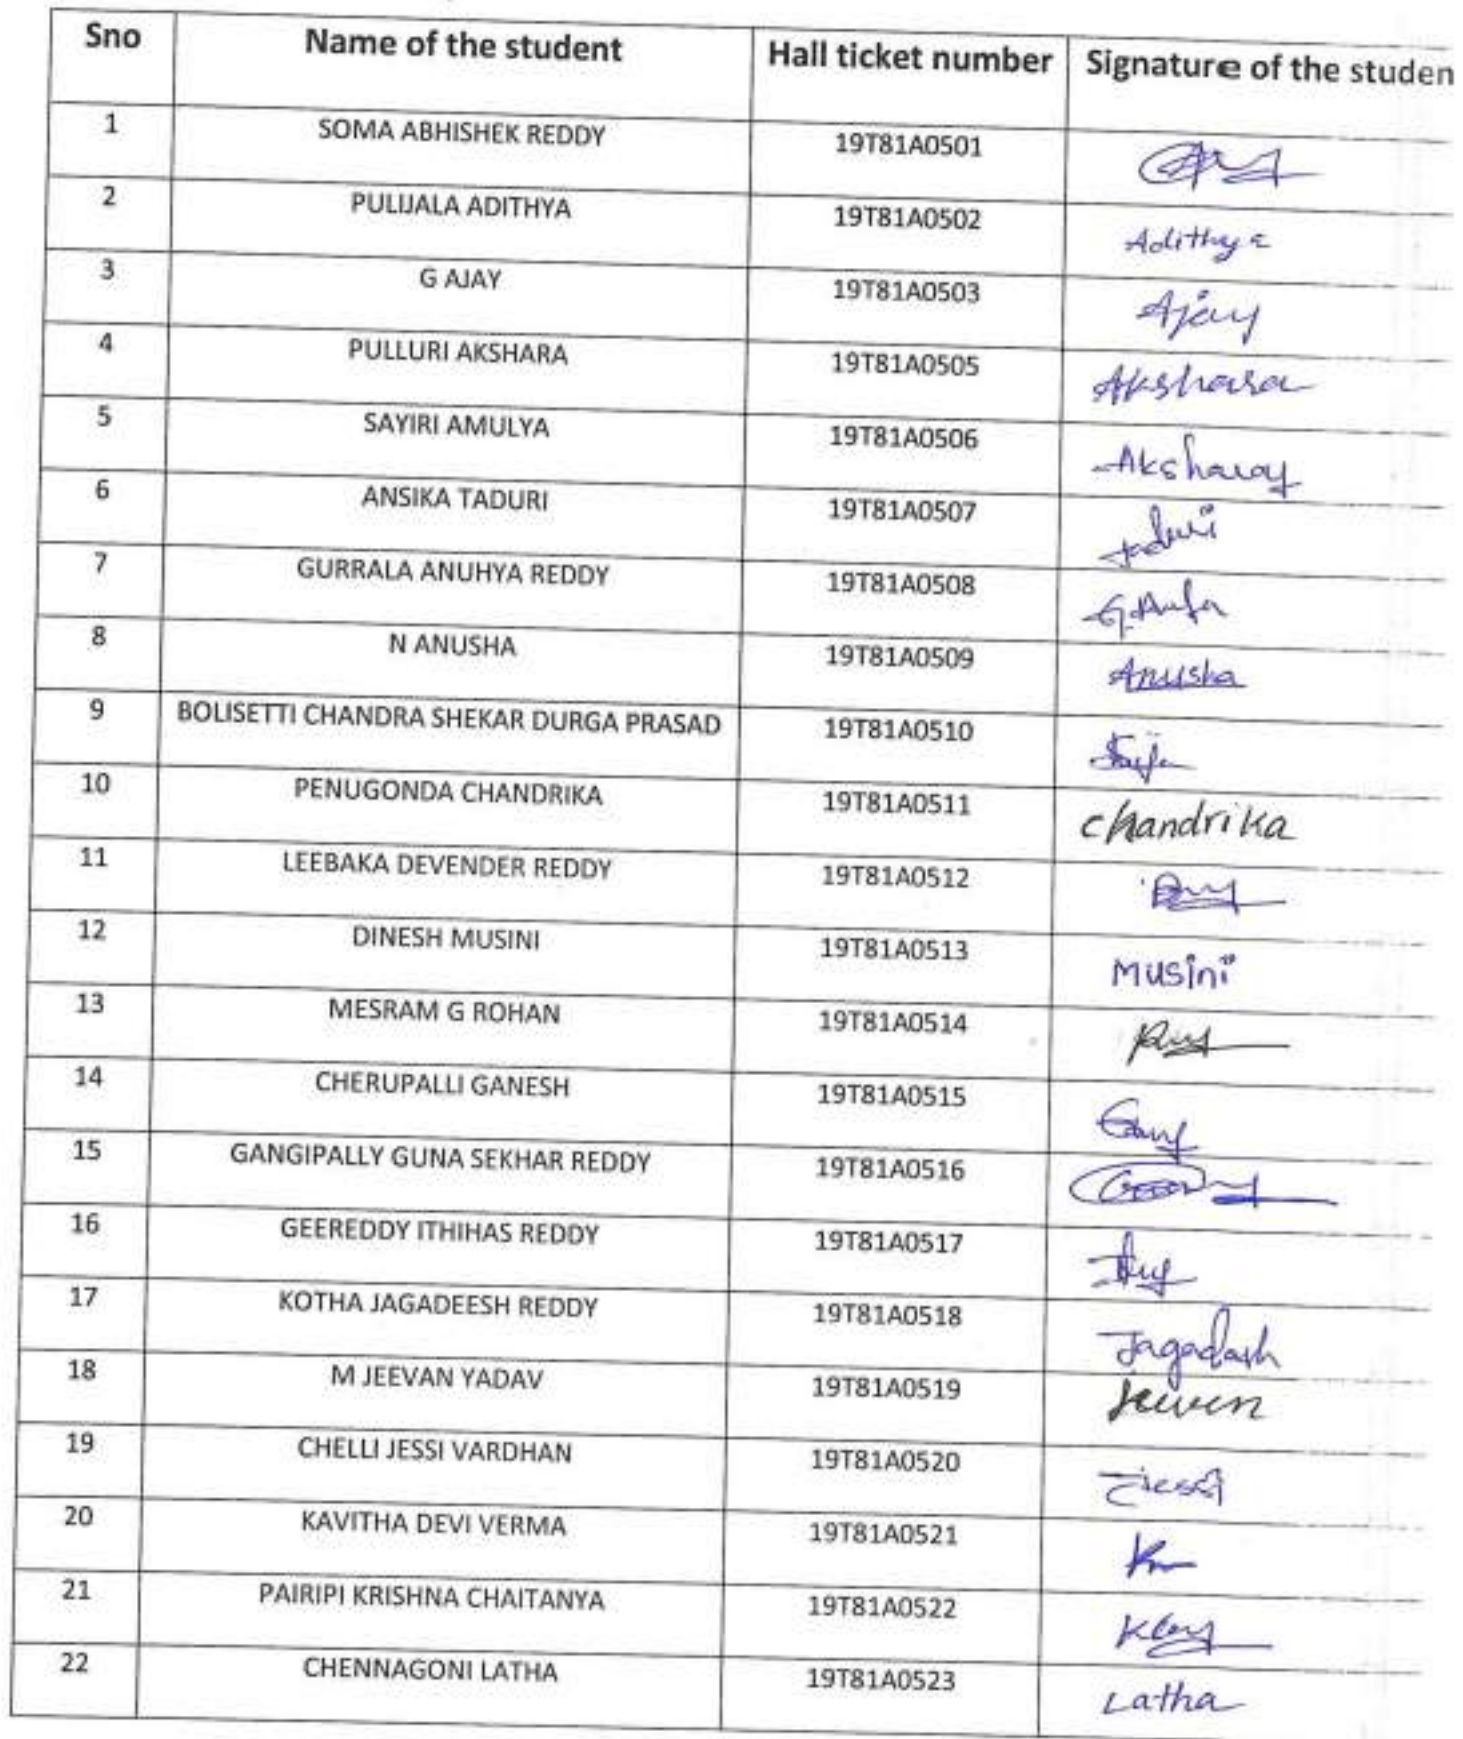 Sno Name of the student Hall ticket number Signature of the studen
1 SOMA ABHISHEK REDDY 19T81A0501
2 PULIJALA ADITHYA 19T81A0502 Adithya
3 G AJAY 19T81A0503 Ajay
4 PULLURI AKSHARA 19T81A0505 Akshara
5 SAYIRI AMULYA 19T81A0506 Aksharay
6 ANSIKA TADURI 19T81A0507 Taduri
7 GURRALA ANUHYA REDDY 19T81A0508
8 N ANUSHA 19T81A0509 Anusha
9 BOLISETTI CHANDRA SHEKAR DURGA PRASAD 19T81A0510
10 PENUGONDA CHANDRIKA 19T81A0511 Chandrika
11 LEEBAKA DEVENDER REDDY 19T81A0512
12 DINESH MUSINI 19T81A0513 Musini
13 MESRAM G ROHAN 19T81A0514
14 CHERUPALLI GANESH 19T81A0515
15 GANGIPALLY GUNA SEKHAR REDDY 19T81A0516
16 GEEREDDY ITHIHAS REDDY 19T81A0517
17 KOTHA JAGADEESH REDDY 19T81A0518 Jagadash
18 M JEEVAN YADAV 19T81A0519
19 CHELLI JESSI VARDHAN 19T81A0520
20 KAVITHA DEVI VERMA 19T81A0521
21 PAIRIPI KRISHNA CHAITANYA 19T81A0522
22 CHENNAGONI LATHA 19T81A0523 Latha